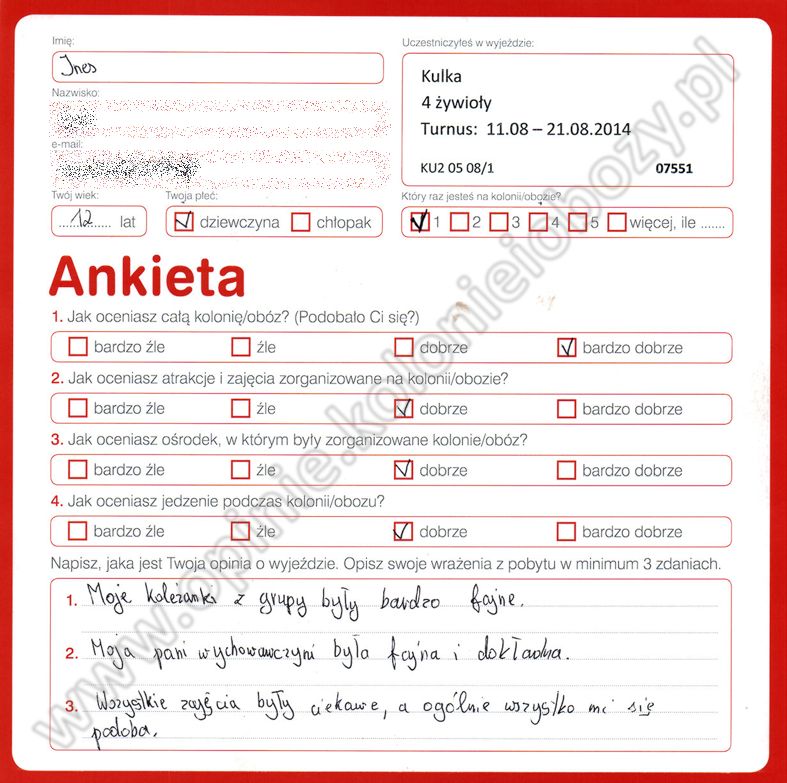 Imię:
Uczestniczyłeś w wyjeździe:
Ines
Kulka
4 żywioły
Turnus: 11.08 – 21.08.2014
KU2 05 08/1 07551
Nazwisko:
e-mail:
Twój wiek: Twoja płeć: Który raz jesteś na kolonii/obozie?
12 lat dziewczyna chłopak 1 2 3 4 5 więcej, ile .......
Ankieta
1. Jak oceniasz całą kolonię/obóz? (Podobało Ci się?)
bardzo źle źle dobrze bardzo dobrze
2. Jak oceniasz atrakcje i zajęcia zorganizowane na kolonii/obozie?
bardzo źle źle dobrze bardzo dobrze
3. Jak oceniasz ośrodek, w którym były zorganizowane kolonie/obóz?
bardzo źle źle dobrze bardzo dobrze
4. Jak oceniasz jedzenie podczas kolonii/obozu?
bardzo źle źle dobrze bardzo dobrze
Napisz, jaka jest Twoja opinia o wyjeździe. Opisz swoje wrażenia z pobytu w minimum 3 zdaniach.
1. Moje koleżanki z grupy były bardzo fajne.
2. Moja pani wychowawczyni była fajna i dokładna.
3. Wszystkie zajęcia były ciekawe, a ogólnie wszystko mi się
podoba.
www.opinie.kolonieiobozy.pl